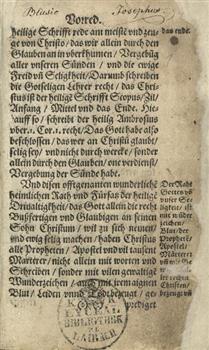 Blusio Josephus
Vorred.
heilige Schrifft rede am meiste vnd zeu-
ge von Christo / das wir allein durch den
Glauben an in vberkumen / Vergebūg
aller vnseren Sünden / vnd die ewige
Freid vñ Seligkeit / Darumb schreiben
die Gotseligen Lehrer recht / das Chri-
stus ist der heilig Schrifft Scopus / Zil /
Anfang / Mittel vnd das Ende. Die-
auff so / schreibt der heilig Ambrosius
vber. 1. Cor. 1. recht / Das Gott habe also
beschlossen / das wer an Christū glaubt /
selig sey / vnd nicht durch werck / sonder
allein durch den Glauben / one verdienst /
Vergebung der Sünde habt.
Vnd disen offtgenanten wunderliche
heimlichen Rath vnd Fürsaß der heilige
Dreyaltigkeit / das Gott allein die recht
Bußfertigen vnd Glaubigen an seinen
Sohn Christum / wil zu sich nemen /
vnd ewig selig machen / haben Christus
alle Propheten / Apostel vnd vil tausent
Marterer / nicht allein mit worten vnd
Schreiben / sonder mit vilen gewaltige
Wunderzeichen / auch mit irem aignen
Blut / Leiden vnd Todt bezeugt / ge-
prediget
das ende.
Der Raht
Gottes vō
vnser Se-
ligkeit / ist
mit
Blut / der
Prophetē /
Apostel /
Märterer
Christen /
bezeuget
BIBLIOTHEK